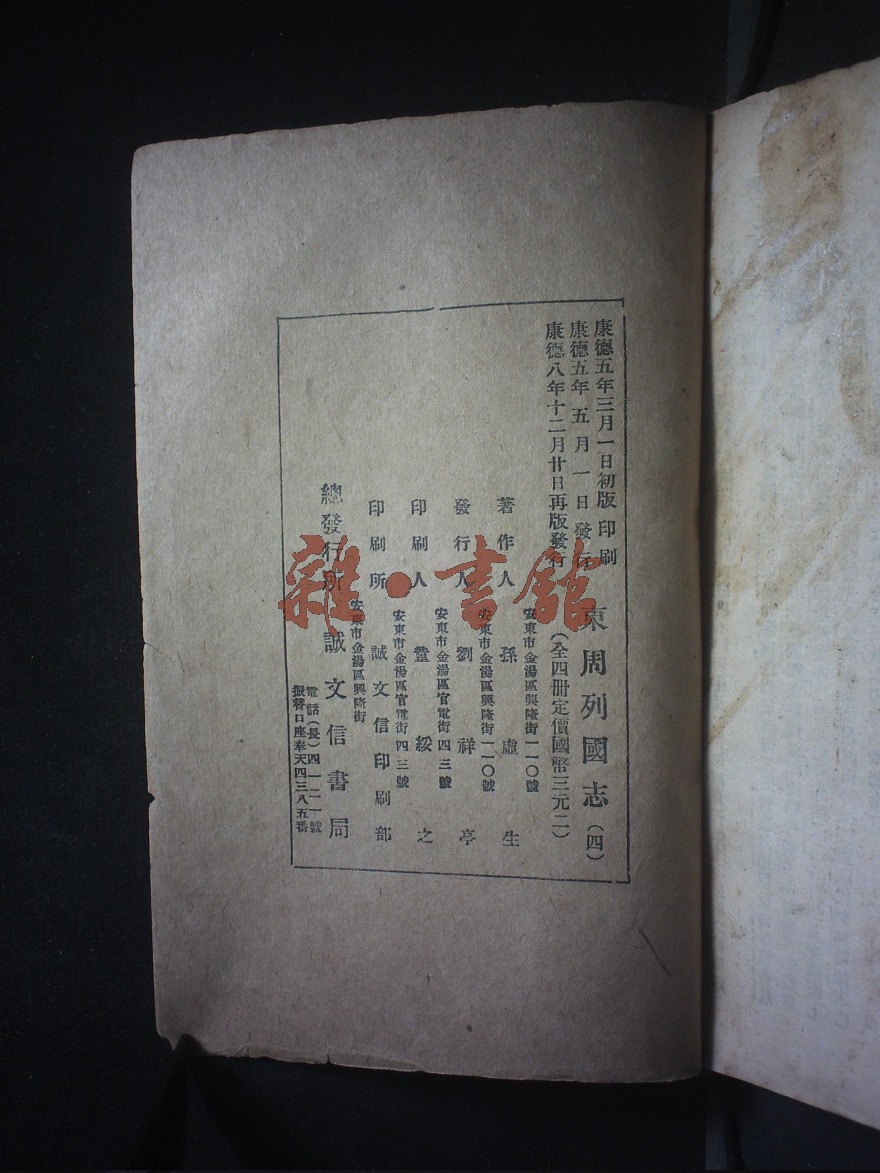 康德五年三月一日初版印刷
康德五年五月一日發行
康德八年十二月廿日再版發行
東周列國志(四)
(全四冊定價國幣三元二)
安東市金湯區興隆街一一〇號
著作人 孫虛生
安東市金湯區興隆街一一〇號
發行人 劉祥亭
安東市金湯區官電街四三號
印刷人 綏之
安東市金湯區官電街四三號
印刷所 誠文信印刷部
安東市金湯區興隆街
總發行所 誠文信書局
電話(長)四一二一號
振替口座奉天四三八五番
雜·書館